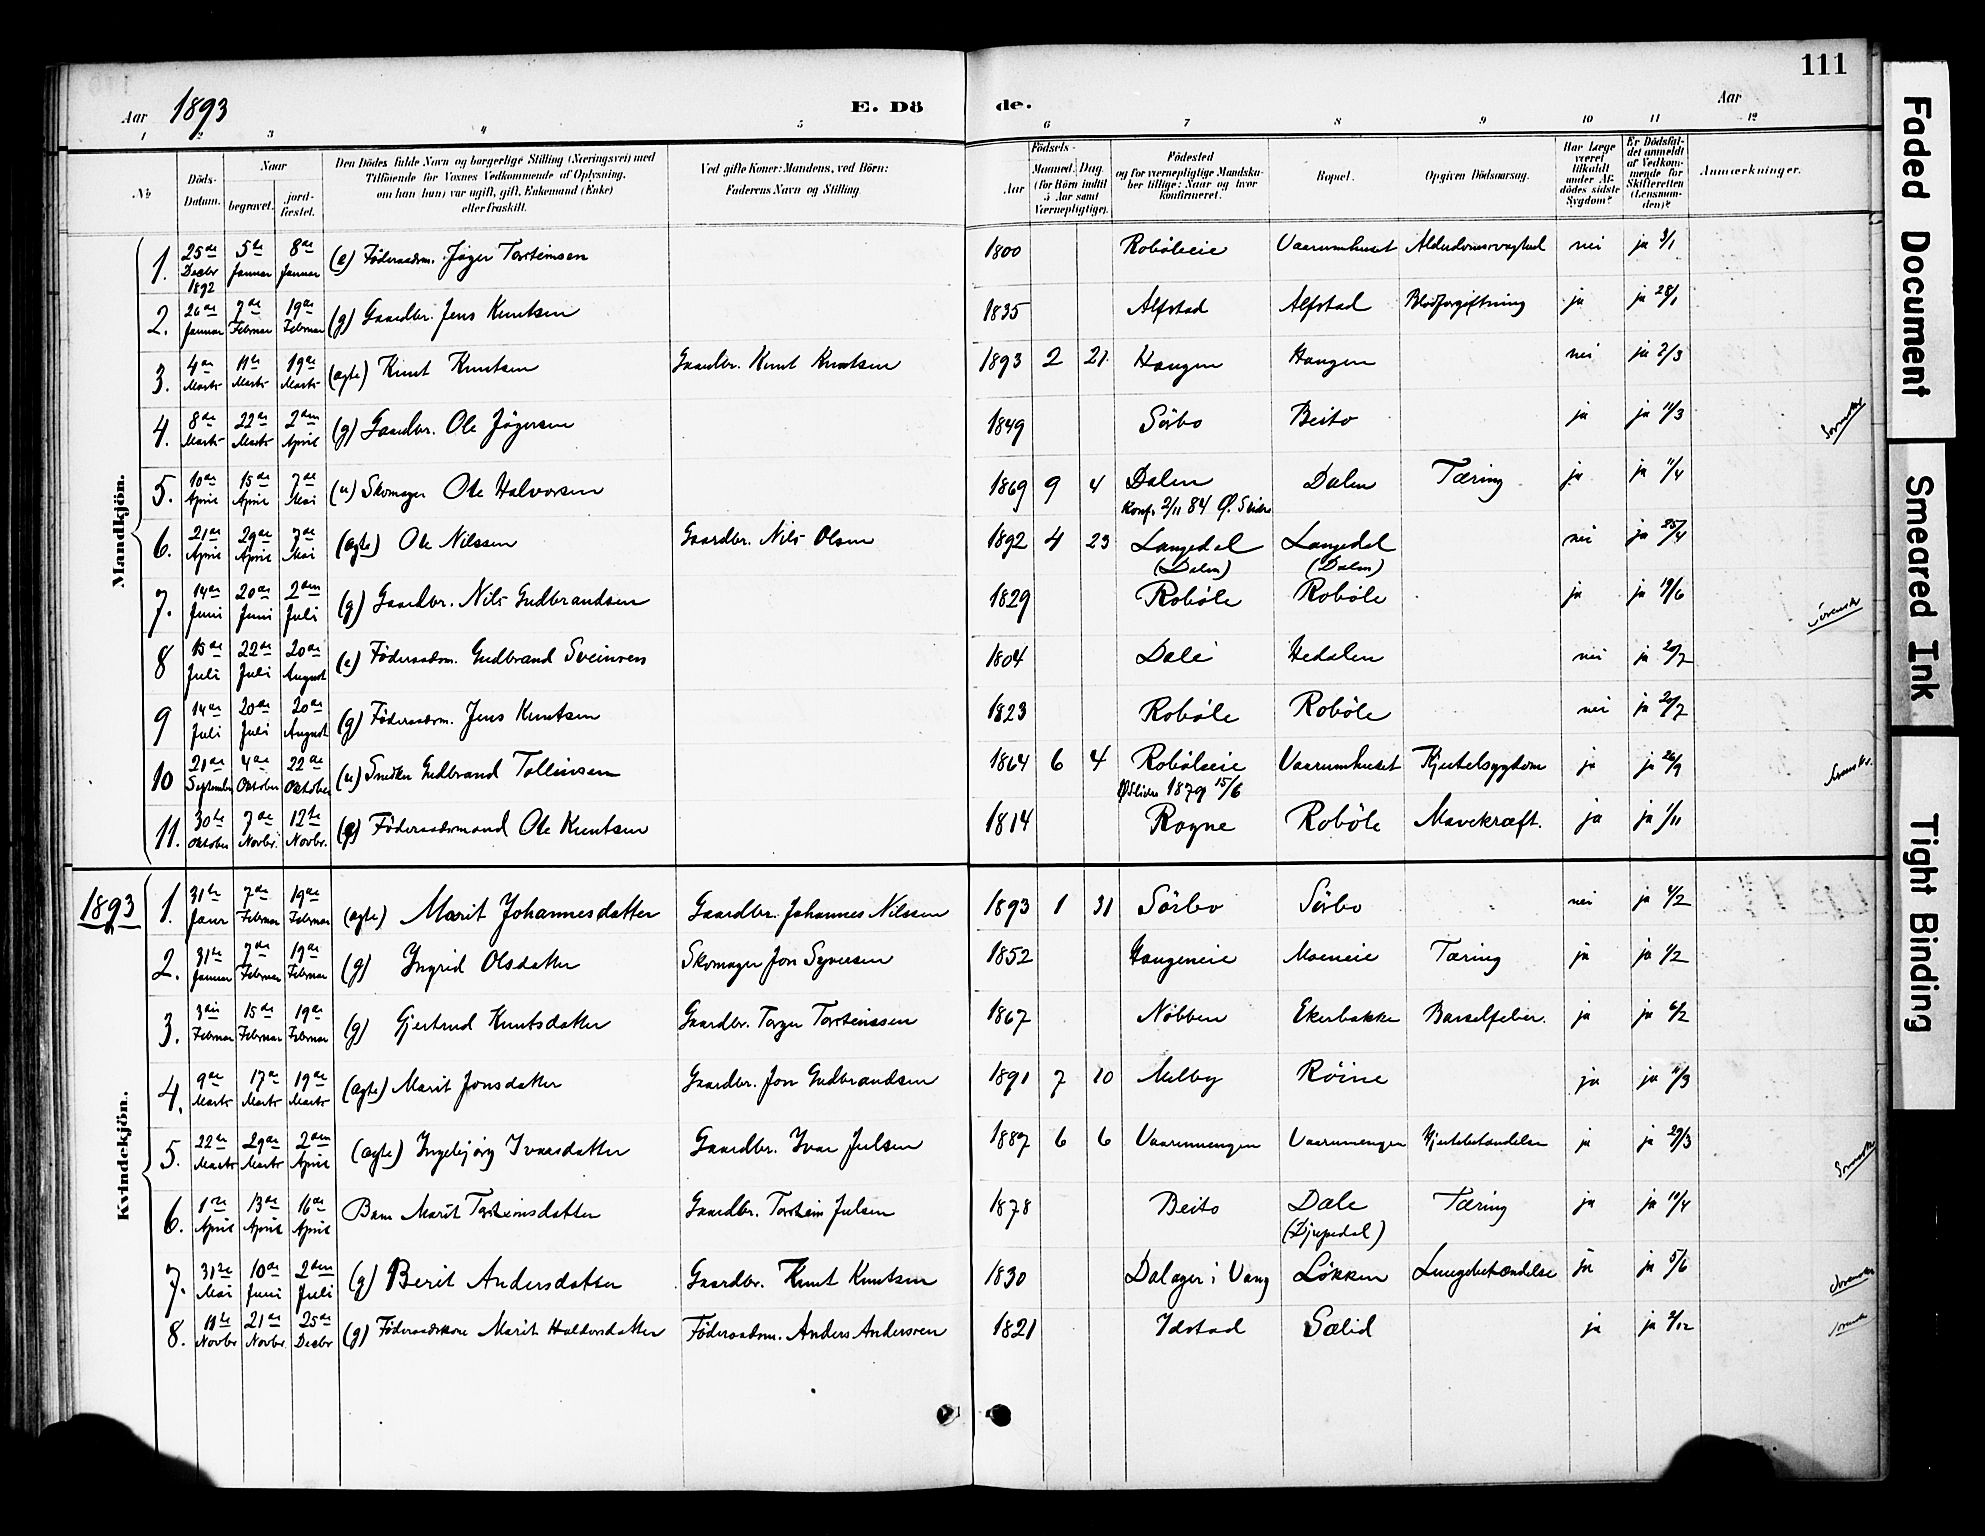 111
Aar 1893
E. Dö de.
Aar
1 2 3 4 5 6 7 8 9 10 11 12
No
Naar
Döds-Datum. begravet. jordfæstet.
Den Dödes fulde Navn og borgerlige Stilling (Næringsvei) med
Tilföiende for Voxnes Vedkommende af Oplysning,
om han (hun) var ugift, gift, Enkemand (Enke)
eller fraskilt.
Ved gifte Koner: Mandens, ved Börn:
Faderens Navn og Stilling.
Födsels-
Aar Maaned. Dag.
(for Börn indtil
5 Aar samt
Værnepligtige).
Födested
og for værnepligtige Mandska-
ber tillige: Naar og hvor
konfirmeret.
Bopæl.
Opgiven Dödsaarsag.
Har Læge
været
tilkaldt
under Af-
dödes sidste
Sygdom?
Er Dödsfal-
det anmeldt
af Vedkom-
mende for
Skifteretten
(Lensman-
den)?
Anmærkninger.
Mandkjön.
1. 25de Decbr 1892 5te Januar 8de Januar (e) Föderaadsm. Jöger Torsteinsen 1800 Robøleie Vaarumhuset nei ja 3/1
2. 26de Januar 7de Februar 19de Februar (g) Gaardbr. Jens Knutsen 1835 Alfstad Alfstad Blodforgiftning ja ja 28/1
3. 4de Marts 11te Marts 19de Marts (ægte) Knut Knutsen Gaardbr. Knut Knutsen 1893 2 21 Haugen Haugen nei ja 2/3
4. 8de Marts 22de Marts 2den April (g) Gaardbr. Ole Jögersen 1849 Sörbo Beito ja ja 11/3
5. 10de April 15de April 7de Mai (u) Skomager Ole Halvorsen 1869 9 4 Dalen Dalen Tæring ja ja 11/4
Konf. 2/11 84 Ø. Slidre
6. 21de April 29de April 7de Mai (ægte) Ole Nilssen Gaardbr. Nils Olsen 1892 4 23 Langedal Langedal nei ja 25/4
(Dalen) (Dalen)
7. 14de Juni 20de Juni 2den Juli (g) Gaardbr. Nils Gudbrandsen 1829 Robøle Robøle ja ja 19/6
8 15de Juli 22de Juli 20de August (e) Föderaadsm. Gudbrand Sveinsen 1804 Dale Hedalen nei ja 20/7
9 14de Juli 20de Juli 20de August (g) Föderaadsm. Jens Knutsen 1823 Robøle Robøle nei ja 20/7
10 21de September 4de Oktober 22de Oktober (u) Snedker Gudbrand Tollinsen 1864 6 4 Robøleie Vaarumhuset Kjertelsygdom ja ja 26/9
ØSlidre 1879 15/6
11. 30te Oktober 7de Novbr. 12te Novbr. (g) Föderaadsmand Ole Knutsen 1814 Rogne Robøle Mavekræft. ja ja 1/11
1893
Kvindekjön.
1. 31te Januar 7de Februar 19de Februar (ægte) Marit Johannesdatter Gaardbr. Johannes Nilssen 1893 1 31 Sörbo Sörbo nei ja 4/2
2. 31te Januar 7de Februar 19de Februar (g) Ingrid Olsdatter Skomager Jon Syversen 1852 Haugeneie Moeneie Tæring ja ja 1/2
3. 3die Februar 15de Februar 19de Februar (g) Gjertrud Knutsdatter Gaardbr. Torger Torsteinssen 1867 Nöbben Ekerbakke Barselfeber. ja ja 6/2
4. 9de Marts 17de Marts 19de Marts (ægte) Marit Jonsdatter Gaardbr. Jon Gudbrandsen 1891 7 10 Melby Röine ja ja 11/3
5. 22de Marts 29de Marts 2den April (ægte) Ingebjørg Ivarsdatter Gaardbr. Ivar Julsen 1887 6 6 Vaarumengen Vaarumengen ja ja 29/3
6. 1ste April 13de April 16de April Barn Marit Torsteinsdatter Gaardbr. Torstein Julsen 1878 Beito Dale Tæring ja ja 10/4
(Djupedal)
7. 31te Mai 10de Juni 2den Juli (g) Berit Andersdatter Gaardbr. Knut Knutsen 1830 Dalager i Vang Løkken Lungebetændelse ja ja 5/6
8. 18de Novbr 21de Novbr. 25de Decbr (g) Föderaadskone Marit Haldorsdatter Föderaadsm. Anders Andersen 1821 Idstad Sælid ja ja 2/12
Faded Document
Smeared Ink
Tight Binding